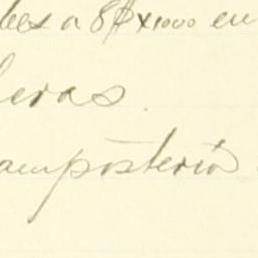 bees a 8$x1000 en
leras.
amposteria